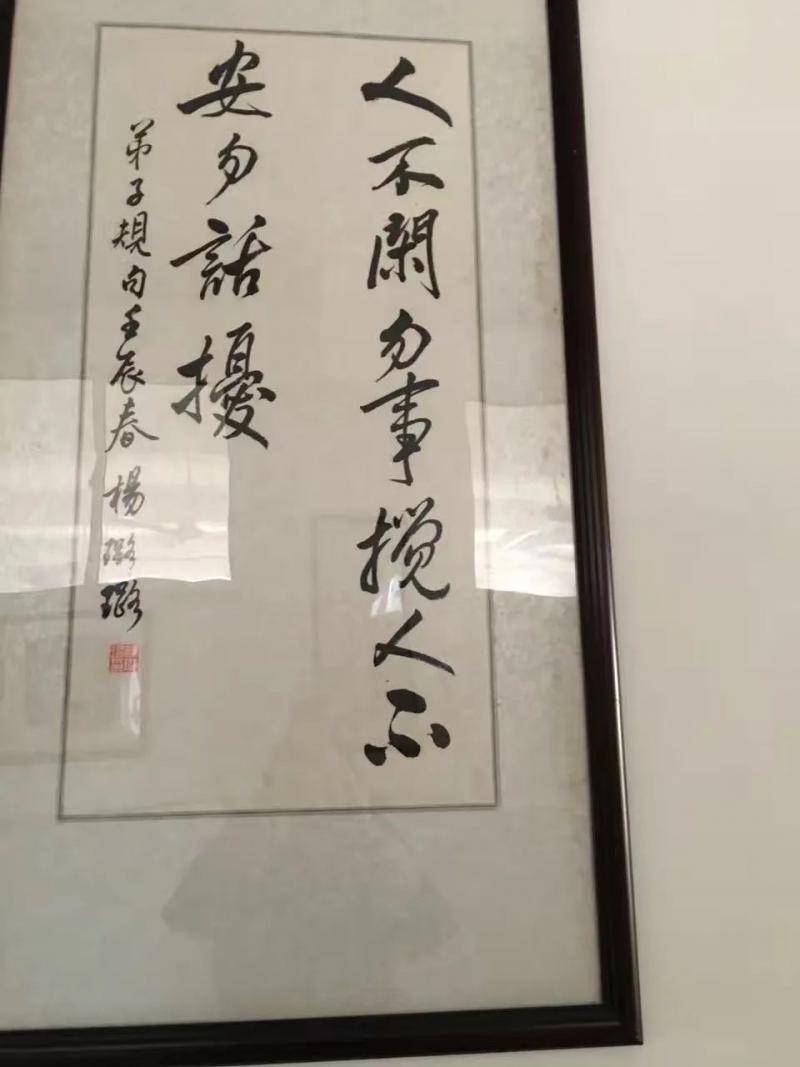 人不閑勿事攪人不
安勿話擾
弟子規句壬辰春楊璐璐